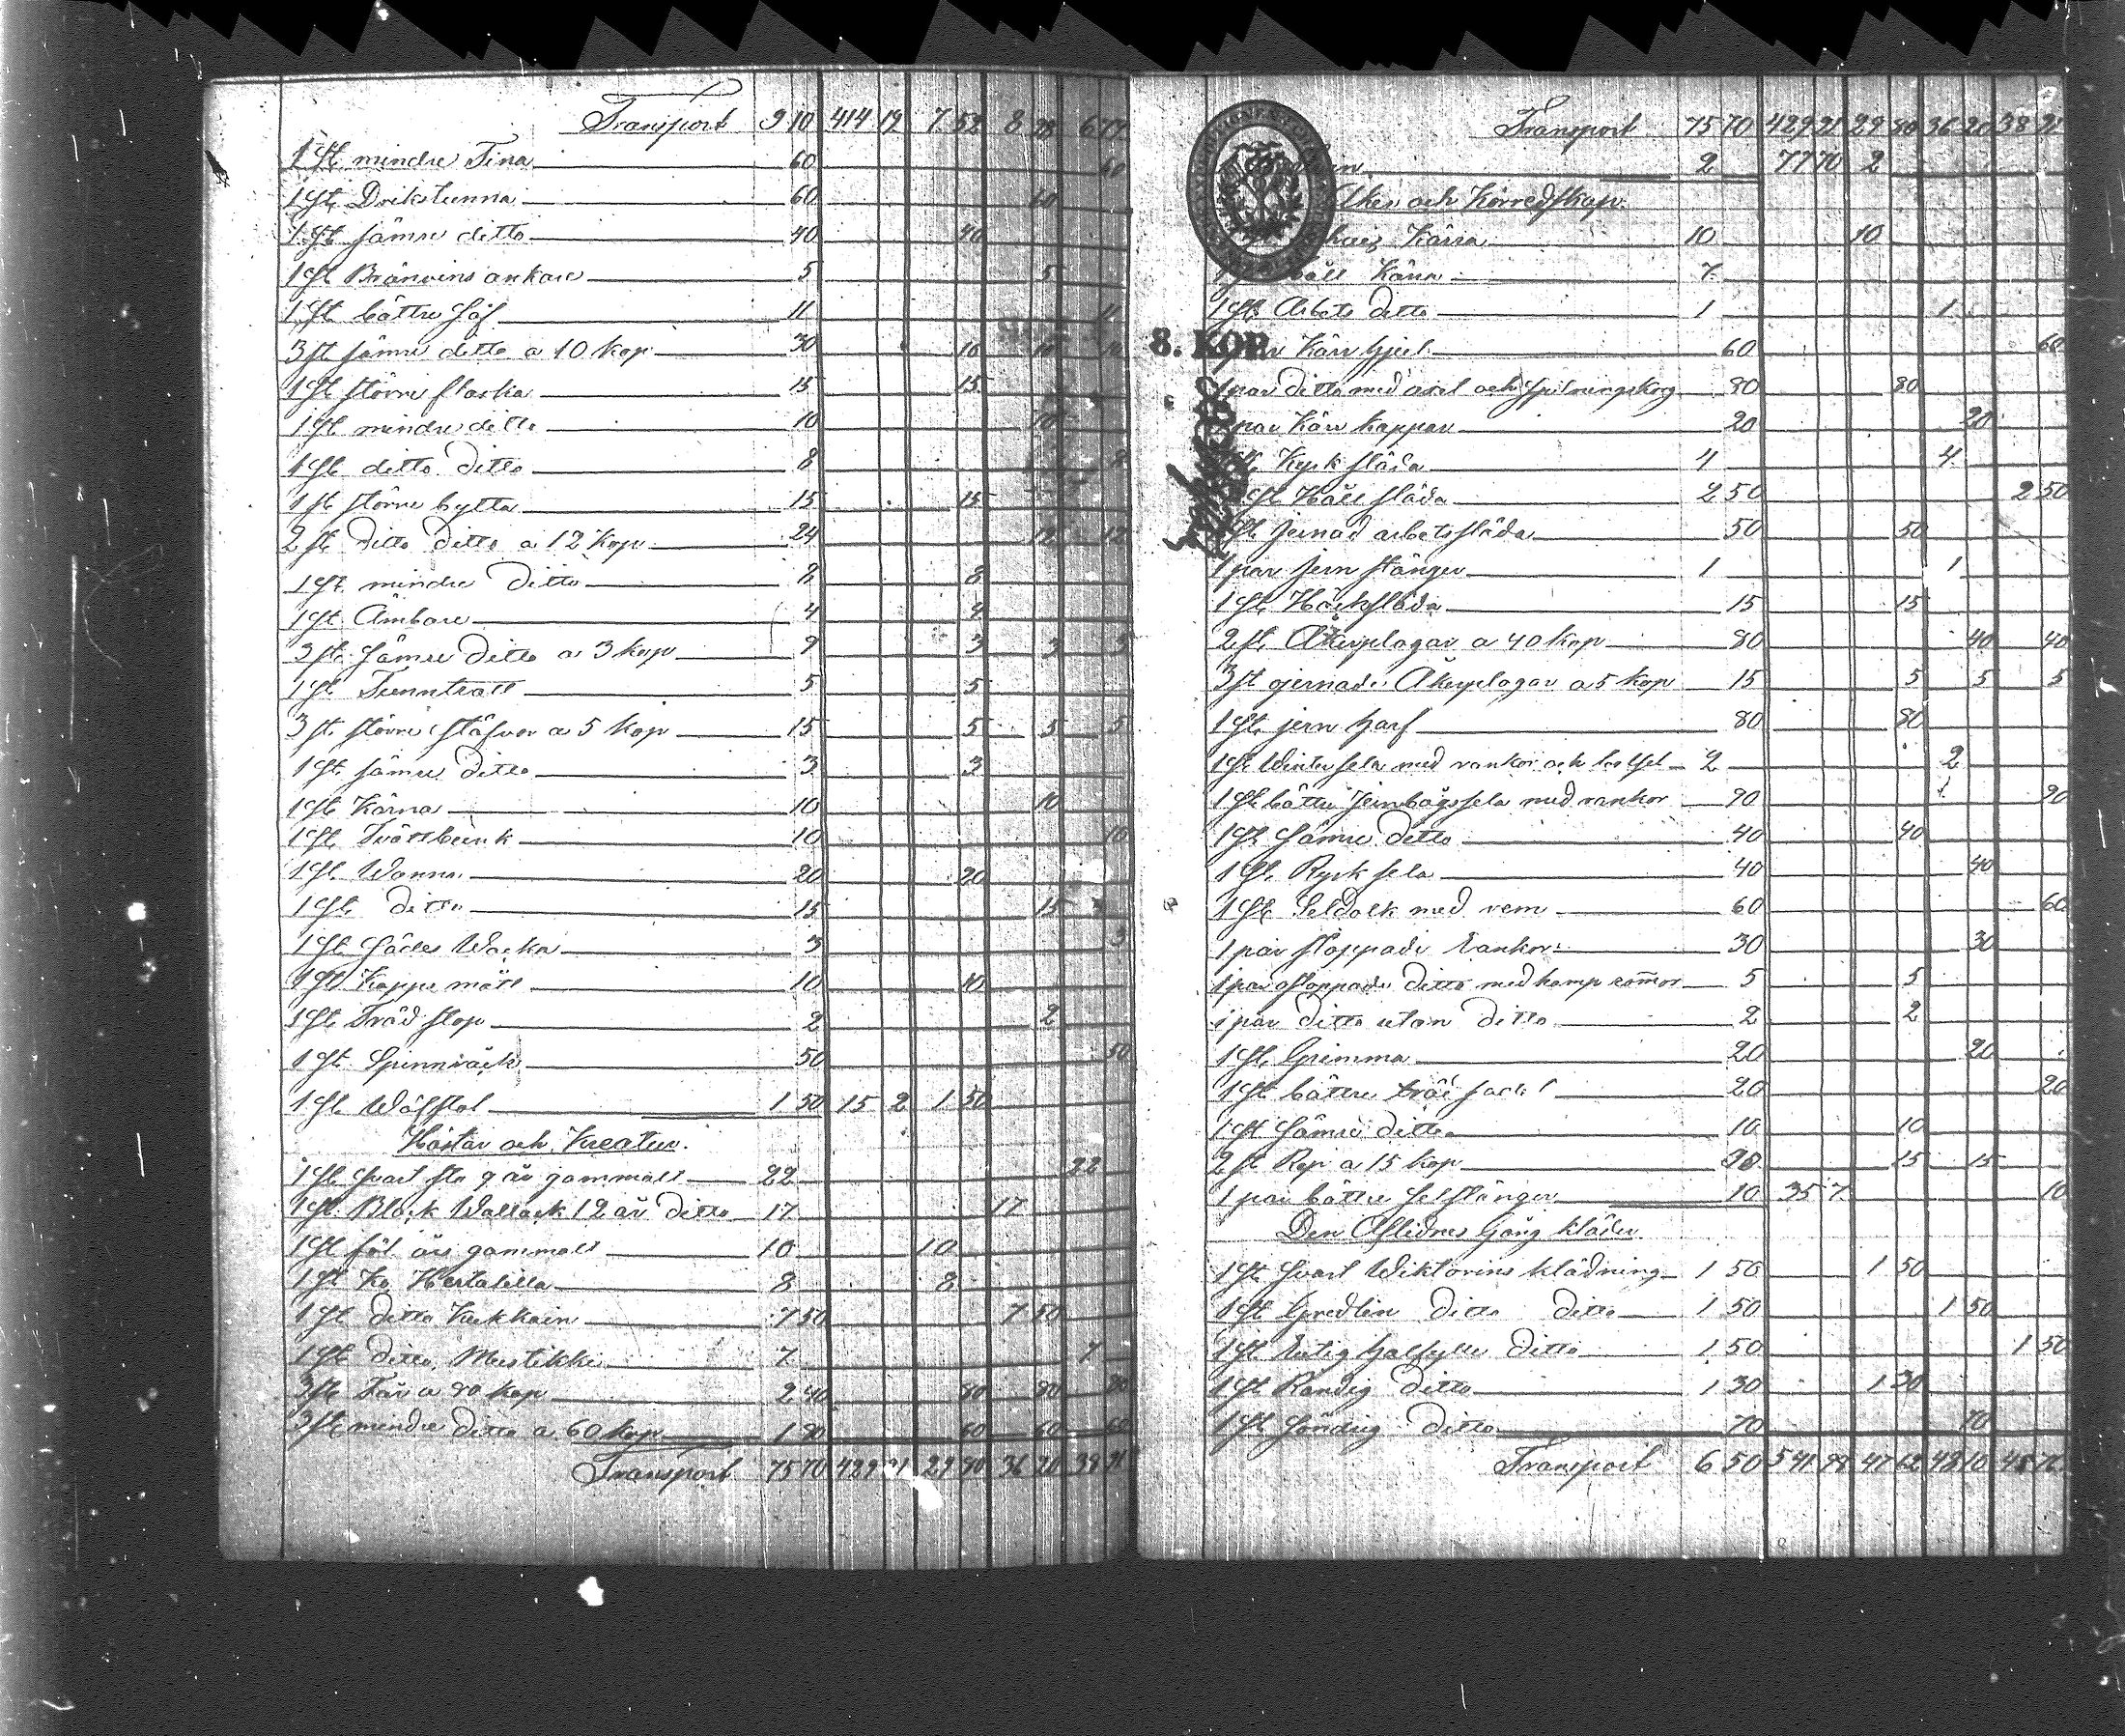 Transport 9 10 414 19 7 52 8 28 6 77
1 st. mindre Tina 60 60
1 st. Drikstunna 60 60
1 st. sämre ditto 40 40
1 st. Bränvins ankare 5 5
1 st. bättre Såf 11 11
3 st sämre ditto a 10 kop 30 10 10 10
1 st större flaska 15 15
1 st mindre ditto 10 10
1 st ditto ditto 8 8
1 st större bytta 15 15
2 st ditto ditto a 12 kop 24 12 12
1 st mindre ditto 8 8
1 st Ämbare 4 4
3 st. sämre ditto a 3 kop 9 3 3 3
1 st. Tunntratt 5 5
3 st. större stäfvor a 5 kop 15 5 5 5
1 st. sämre ditto 3 3
1 st Kärna 10 10
1 st. Tvättbunk 10 10
1 st. Wanna 20 20
1 st. ditto 15 15
1 st. Sädes Wacka 3 3
1 st Kappe mått 10 10
1 st. Träd stop 2 2
1 st. Spinnråck 50 50
1 st. Wäfstol 1 50 15 2 1 50
Hästar och Kreatur.
1 st. svart sto 9 år gammalt 22 22
1 st. Black Wallack 12 år ditto 17 17
1 st föl års gammalt 10 10
1 st. Ko Hertalilla 8 8
1 st ditto Kukkain 7 50 7 50
1 st ditto Mustikki 7 7
3 st. Får a 80 kop 2 40 80 80 80
3 st mindre ditto a 60 kop 1 80 60 60 60
Transport 75 70 429 21 29 80 36 20 38 21
Transport 75 70 429 21 29 80 36 20 38 21
2 77 70 2
Åker och Körredskap
Kärra 10 10
Håll Kärra 7
1 st. Arbets ditto 1 1
8. KOP.
par Kärr hjul 60 60
1 par ditto med axel och 80 80
par Kärr kappar 20 20
st. Kyrk släda 4 4
st. Håll släda 2 50 2 50
st. jernad arbetssläda 50 50
1 par jern stänger 1 1
1 st. Häcksläda 15 15
2 st. Åkerplogar a 40 kop 80 40 40
3 st ojernade Åkerplogar a 5 kop 15 5 5 5
1 st. jern harf 80 80
1 st. Winter sela med rankor och 2 2
1 st. bättre jernbågssela med rankor 90 90
1 st. sämre ditto 40 40
1 st. Ryck sela 40 40
1 st. Seldolk med rem 60 60
1 par stoppade rankor 30 30
1 par ostoppade ditto med hamp 5 5
1 par ditto utan ditto 2 2
1 st. Grimma 20 20
1 st. bättre 20 20
1 st sämre ditto 10 10
2 st Rep a 15 kop 30 15 15
1 par bättre selstänger 10 35 7 10
Den Aflidnes Gång kläder
1 st. svart Wiktorins klädning 1 50 1 50
1 st Gredlin ditto ditto 1 50 1 50
1 st. Rutig halfylle ditto 1 50 1 50
1 st Randig ditto 1 30 1 30
1 st söndrig ditto 70 70
Transport 6 50 541 98 47 62 48 10 48 76